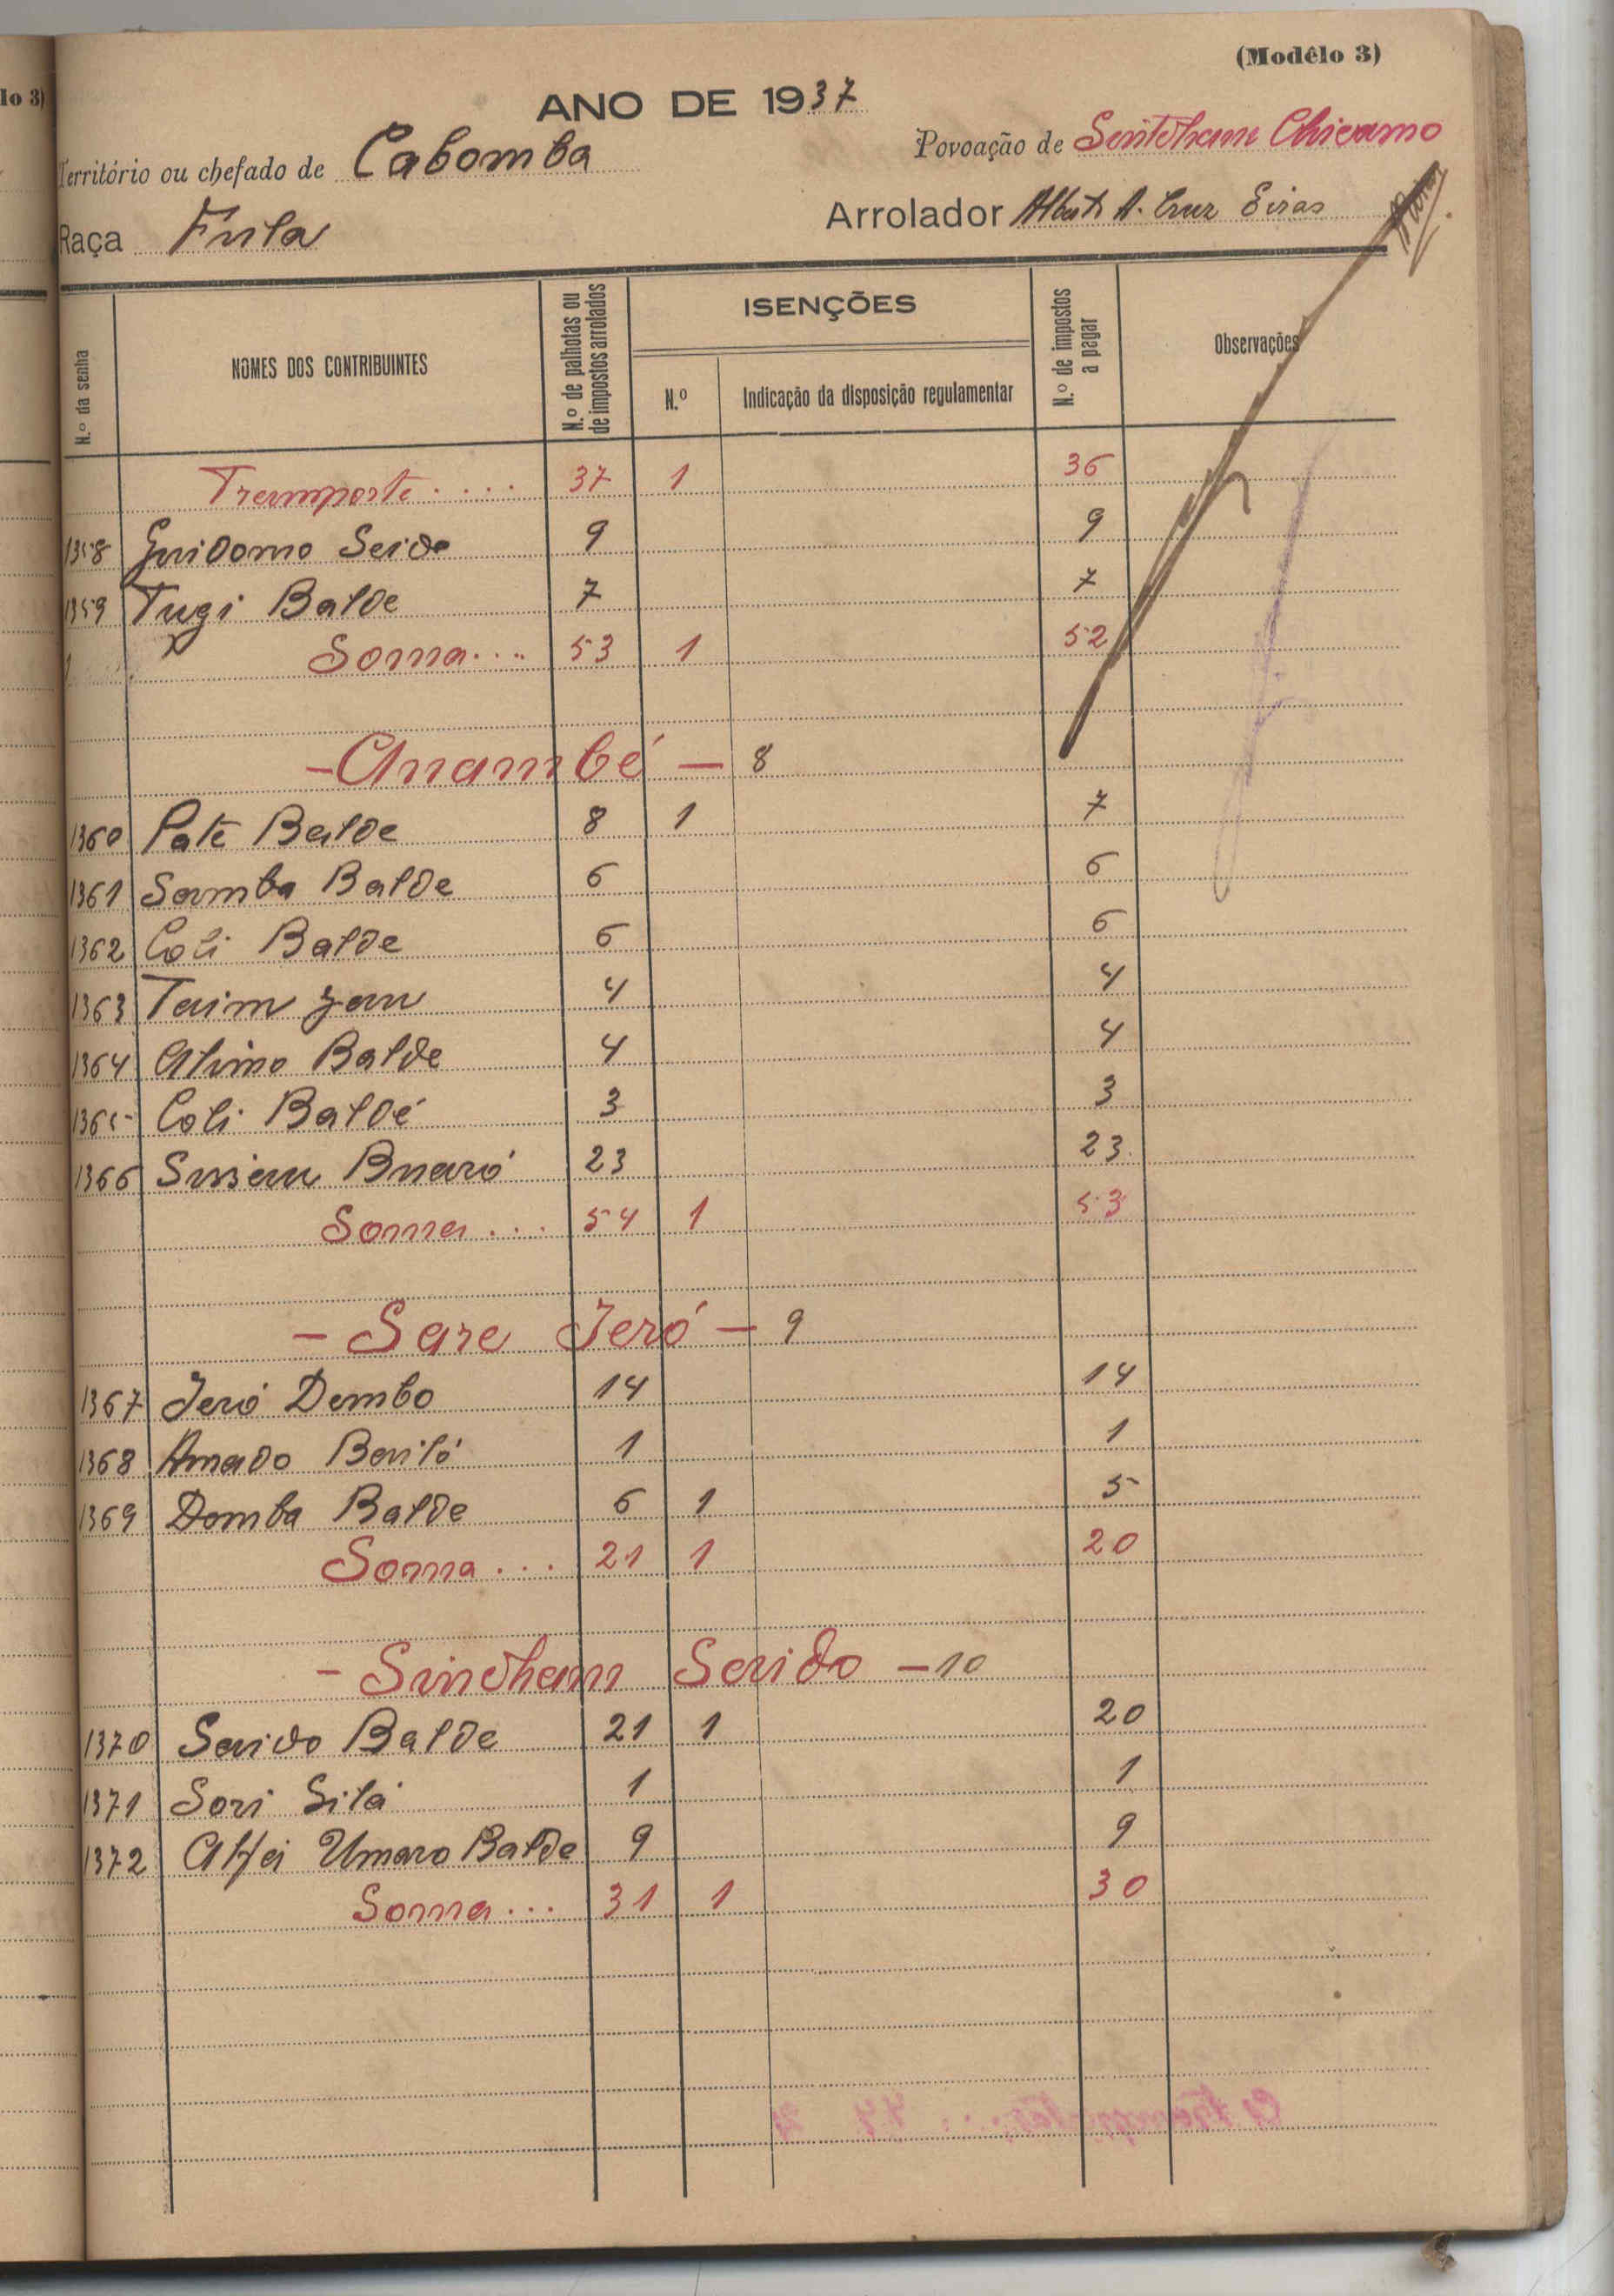 lo 3)
(Modêlo 3)
ANO DE 1937
Território ou chefado de Cabomba
Povoação de Sentcham Chicamo
Raça Fula
Arrolador Alberto A. Cruz Eiras
N.º da senha
NOMES DOS CONTRIBUINTES
N.º de palhotas ou de impostos arrolados
ISENÇÕES
N.º
Indicação da disposição regulamentar
N.º de impostos a pagar
Observações
Transporte .... 37 1 36
1358 Guidomo Seido 9 9
1359 Tugi Balde 7 7
Soma ... 53 1 52
- Anambé - 8
1360 Paté Balde 8 1 7
1361 Samba Balde 6 6
1362 Coli Balde 6 6
1363 Taim Jau 4 4
1364 Alimo Balde 4 4
1365 Coli Baldé 3 3
1366 Buaró 23 23
Soma ... 54 1 53
- Sare Jeró - 9
1367 Jeró Dembo 14 14
1368 Amado Bailó 1 1
1369 Demba Balde 6 1 5
Soma ... 21 1 20
- Sincham Saido - 10
1370 Saido Balde 21 1 20
1371 Sori Silá 1 1
1372 Alfa Umaro Balde 9 9
Soma ... 31 1 30